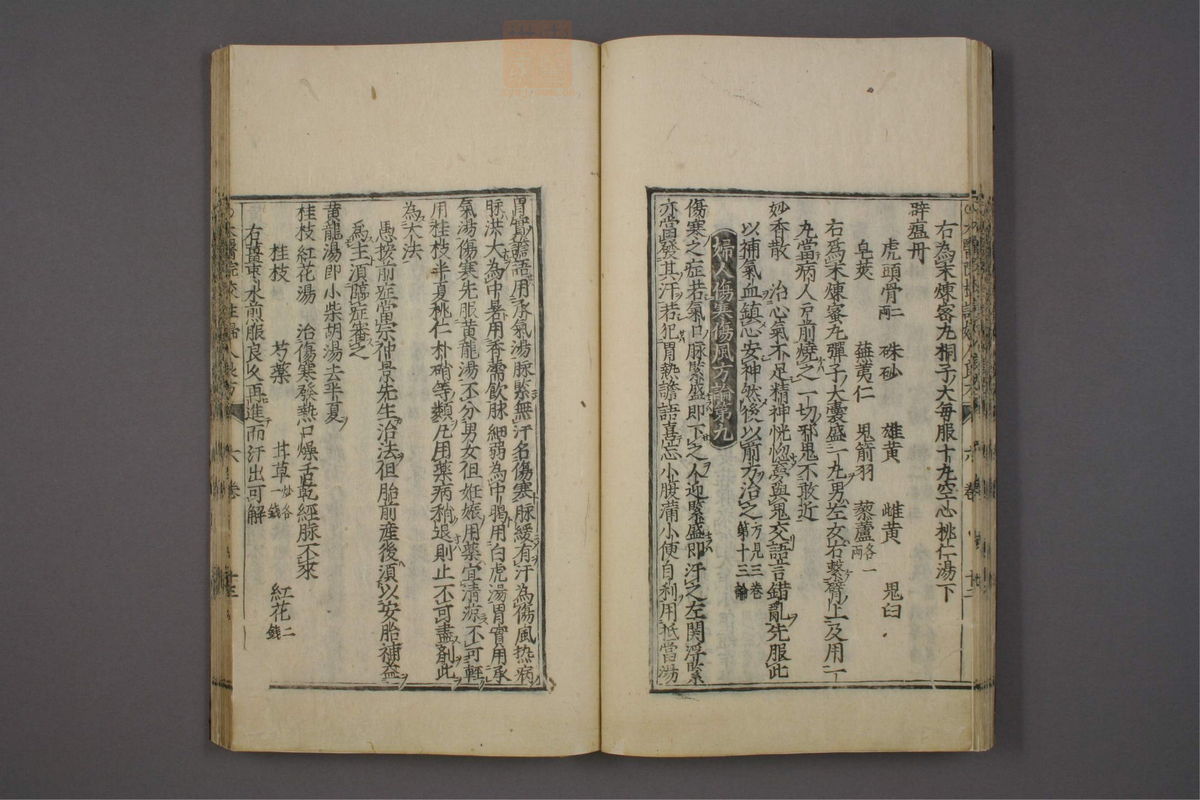 右為末煉蜜丸桐子大每服十丸空心桃仁湯下
辟瘟丹
虎頭骨二兩 硃砂 雄黃 雌黃 鬼臼
皂莢 蕪荑仁 鬼箭羽 藜蘆各一兩
右為末煉蜜丸彈子大囊盛一丸男左女右繫臂上及用一
丸當病人戶前燒之一切邪鬼不敢近
妙香散 治心氣不足精神恍惚夢與鬼交語言錯亂先服此
以補氣血鎮心安神然後以前方治之方見三卷第十三論
婦人傷寒傷風方論第九
傷寒之症若氣口脉緊盛即下之人迎緊盛即汗之左関浮緊
亦當發其汗若犯胃熱譫語喜忘小腹滿小便自利用抵當湯
胃實譫語用承氣湯脉緊無汗名傷寒脉緩有汗為傷風热病
脉洪大為中暑用香薷飲脉細弱為中暍用白虎湯胃實用承
氣湯傷寒先服黃龍湯不分男女但姙娠用藥宜清凉不可輕
用桂枝半夏桃仁朴硝等類凢用藥病稍退則止不可盡劑此
為大法
愚按前症當宗仲景先生治法但胎前產後須以安胎補益
為主須臨症審之
黃龍湯即小柴胡湯去半夏
桂枝紅花湯 治傷寒發熱口燥舌乾經脉不來
桂枝 芍藥 甘草炒各一錢 紅花二錢
右薑棗水煎服良久再進而汗出可解
六卷